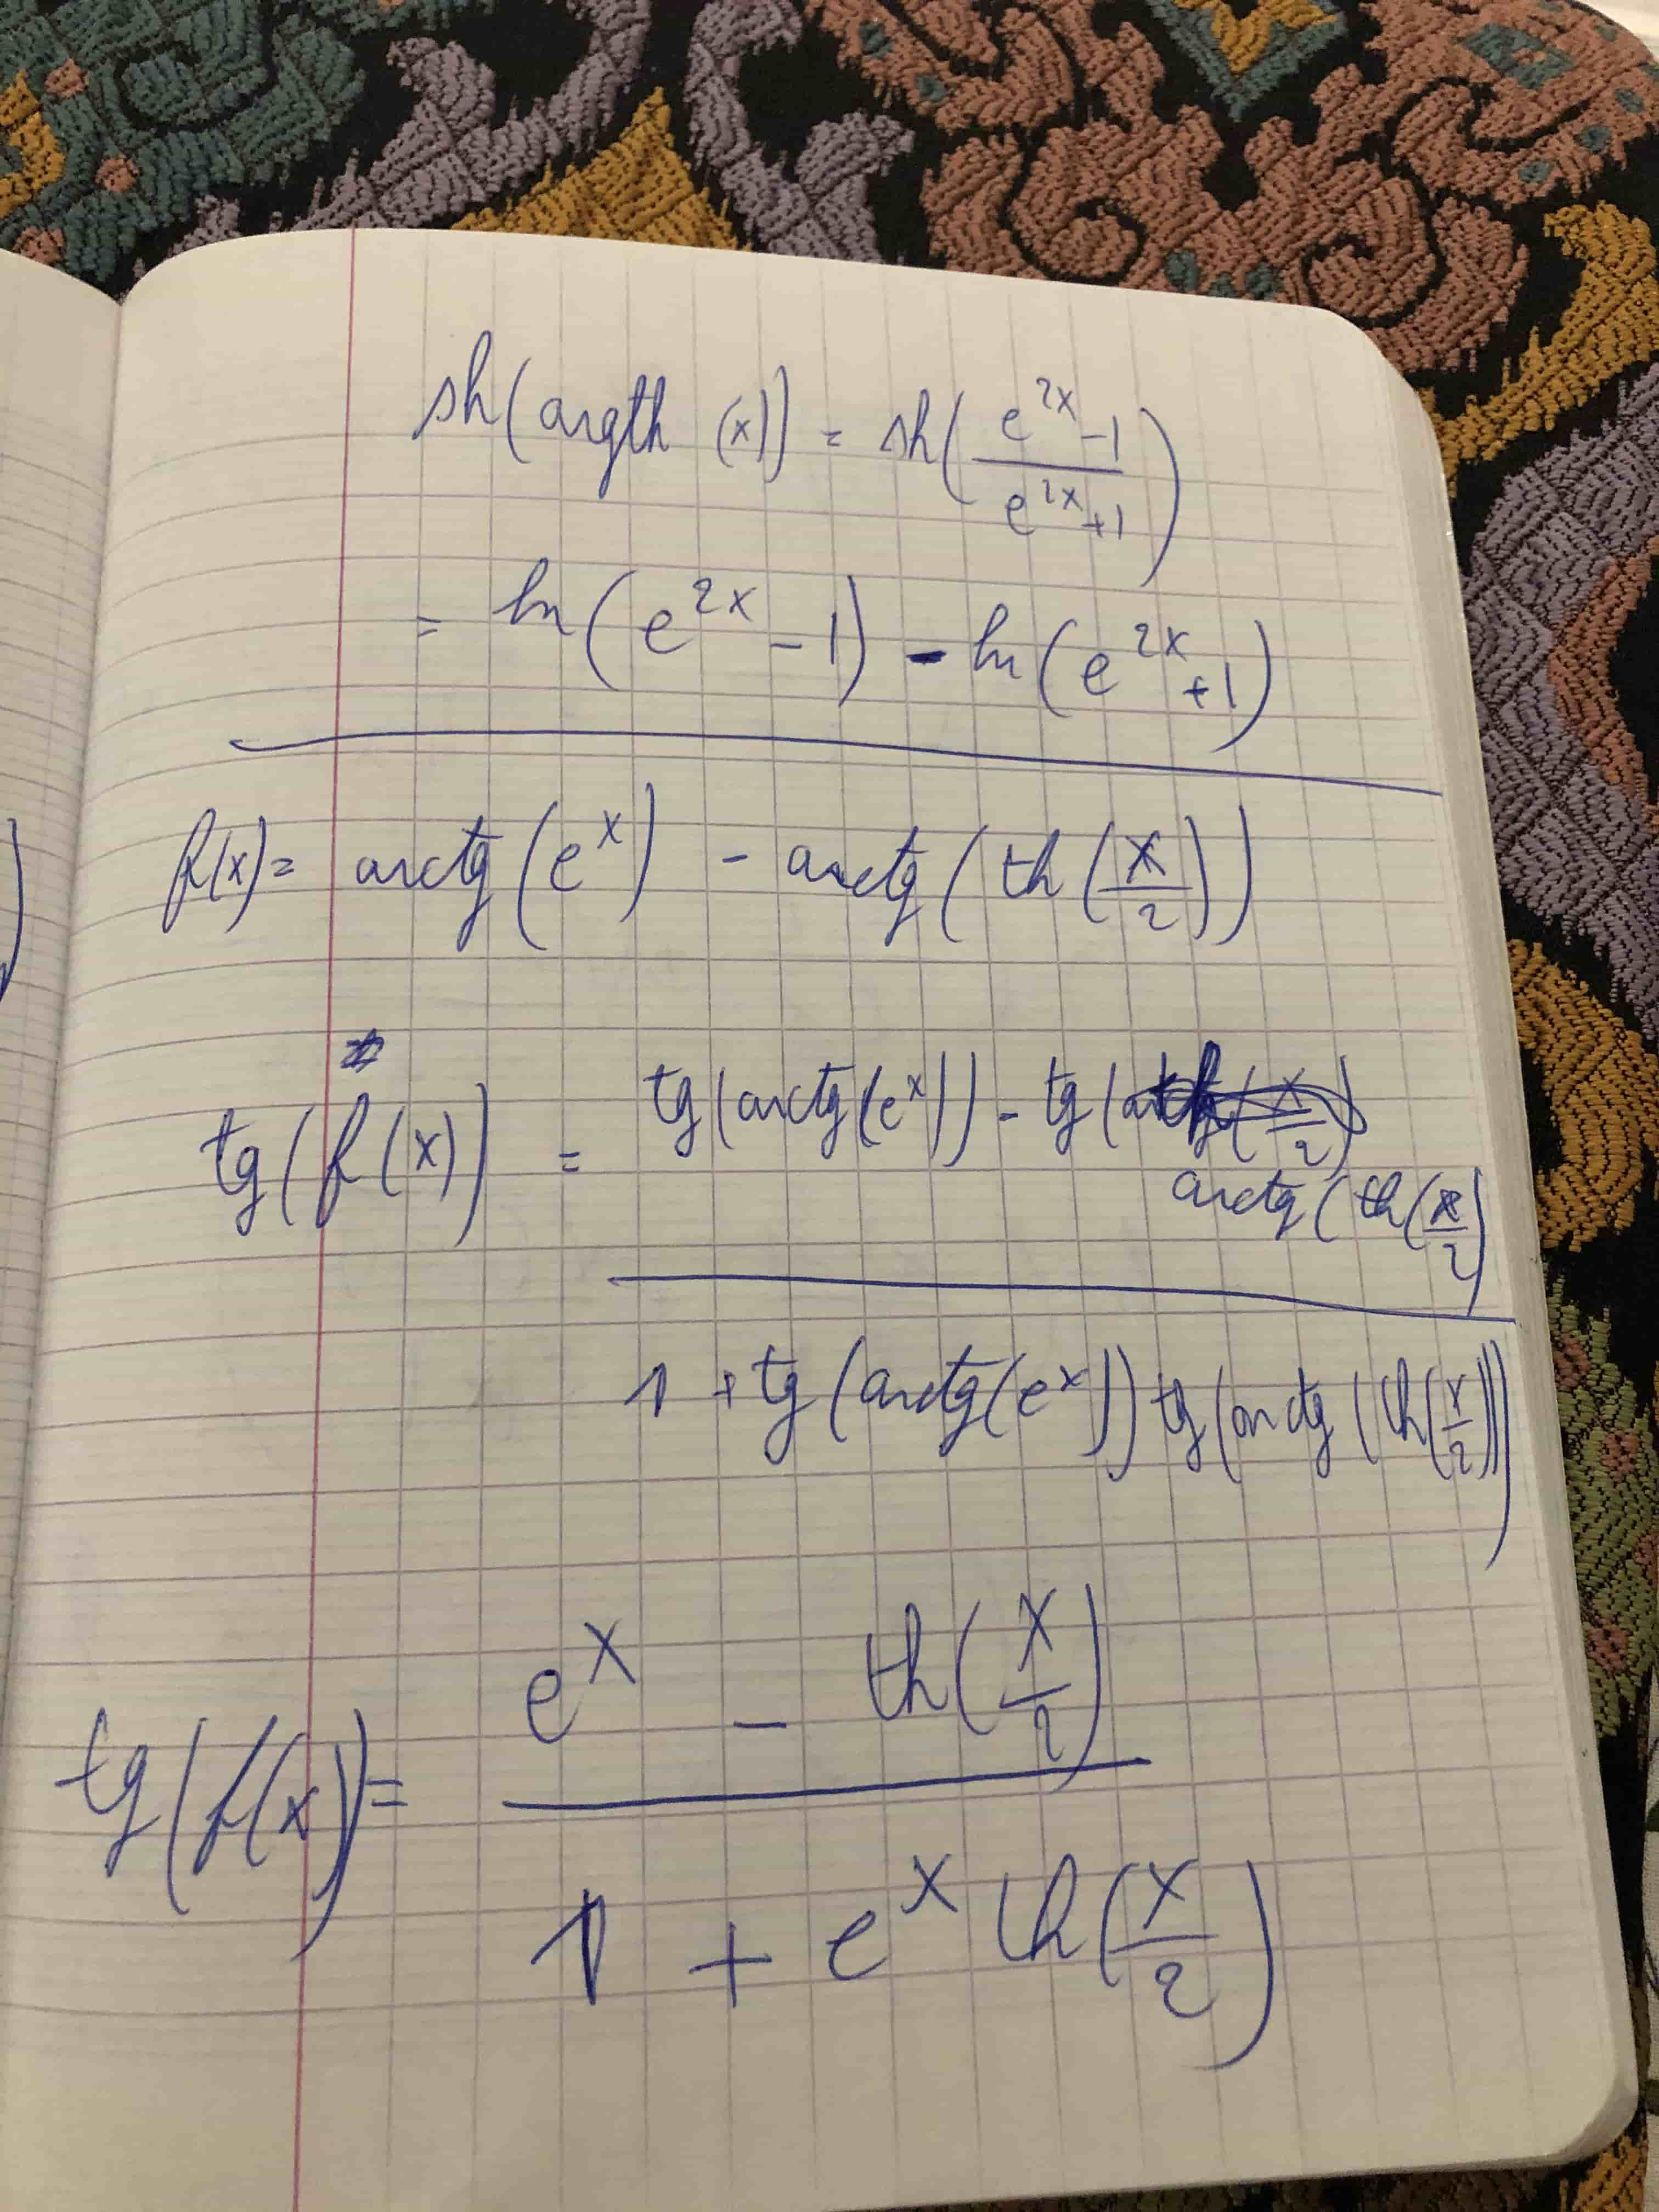 sh(argth (x)) = sh(\frac{e^{2x}-1}{e^{2x}+1})
= ln(e^{2x}-1) - ln(e^{2x}+1)
f(x)= arctg(e^x) - arctg(th(\frac{x}{2}))
tg(f(x)) = \frac{tg(arctg(e^x)) - tg(arctg(th(\frac{x}{2})}{1 + tg(arctg(e^x)) tg(arctg(th(\frac{x}{2})))}
tg(f(x))= \frac{e^x - th(\frac{x}{2})}{1 + e^x th(\frac{x}{2})}